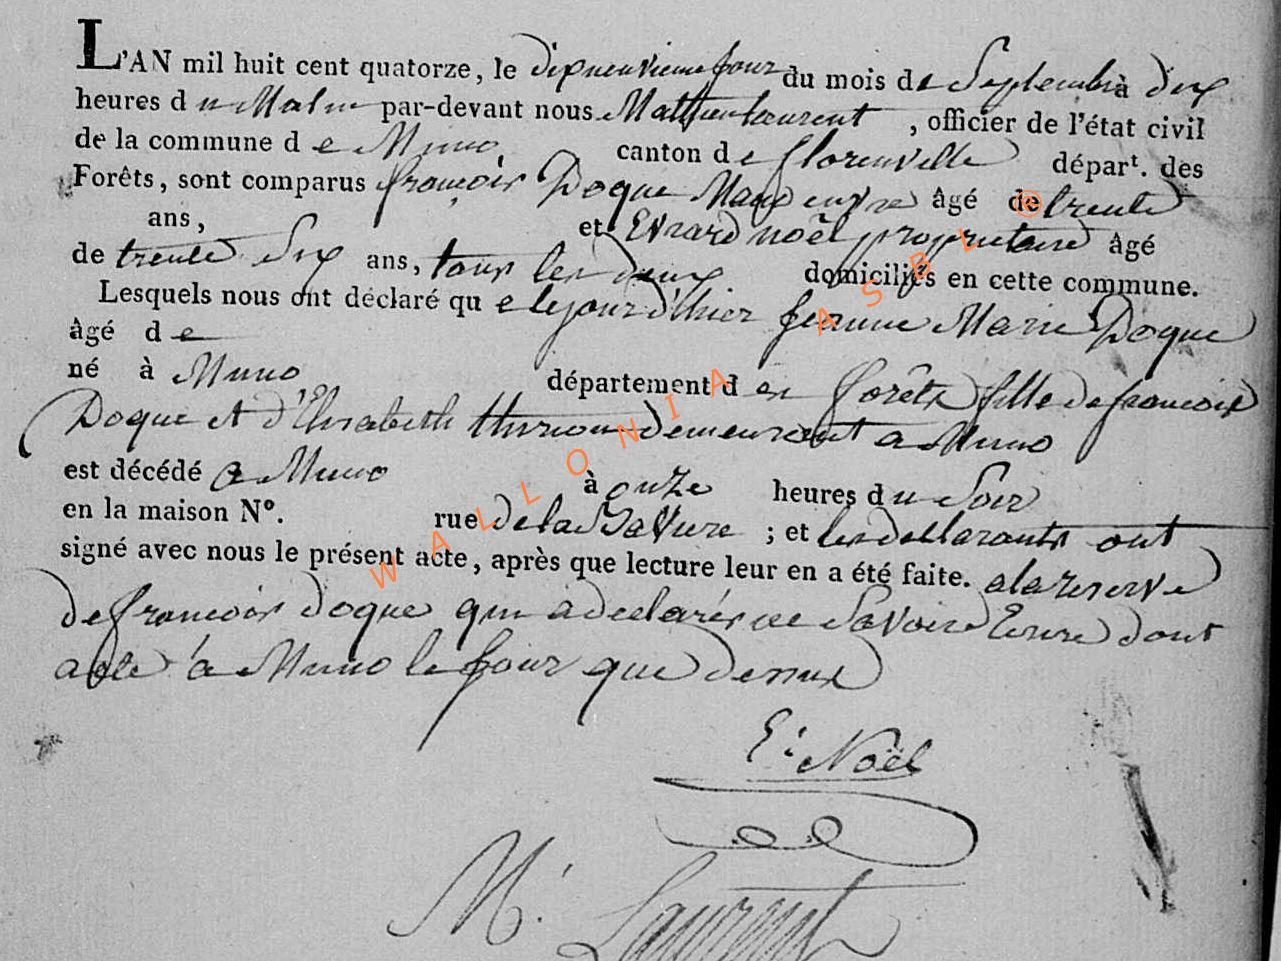 L'AN mil huit cent quatorze, le dixneuvieme jour du mois de Septembre à dix
heures du Matin par-devant nous Mathieu laurent , officier de l'état civil
de la commune de Muno canton de florenville départ. des
Forêts, sont comparus françois Doque âgé de trente
ans, et Evrard noël proprietaire âgé
de trente Six ans, tous les deux domiciliés en cette commune.
Lesquels nous ont déclaré que le jour d'hier jeanne Marie Doque
âgé de
né à Muno département des forêts fille de francois
Doque et d'Elisabeth thirion demeurant a Muno
est décédé a Muno à onze heures du Soir
en la maison N°. rue de la ; et les declarants ont
signé avec nous le présent acte, après que lecture leur en a été faite. a la reserve
de francois doque qui a declarés ne Savoire Ecrire dont
acte à Muno le jour que dessus
E: Noël
M. Laurent
WALLONIA ASBL ©